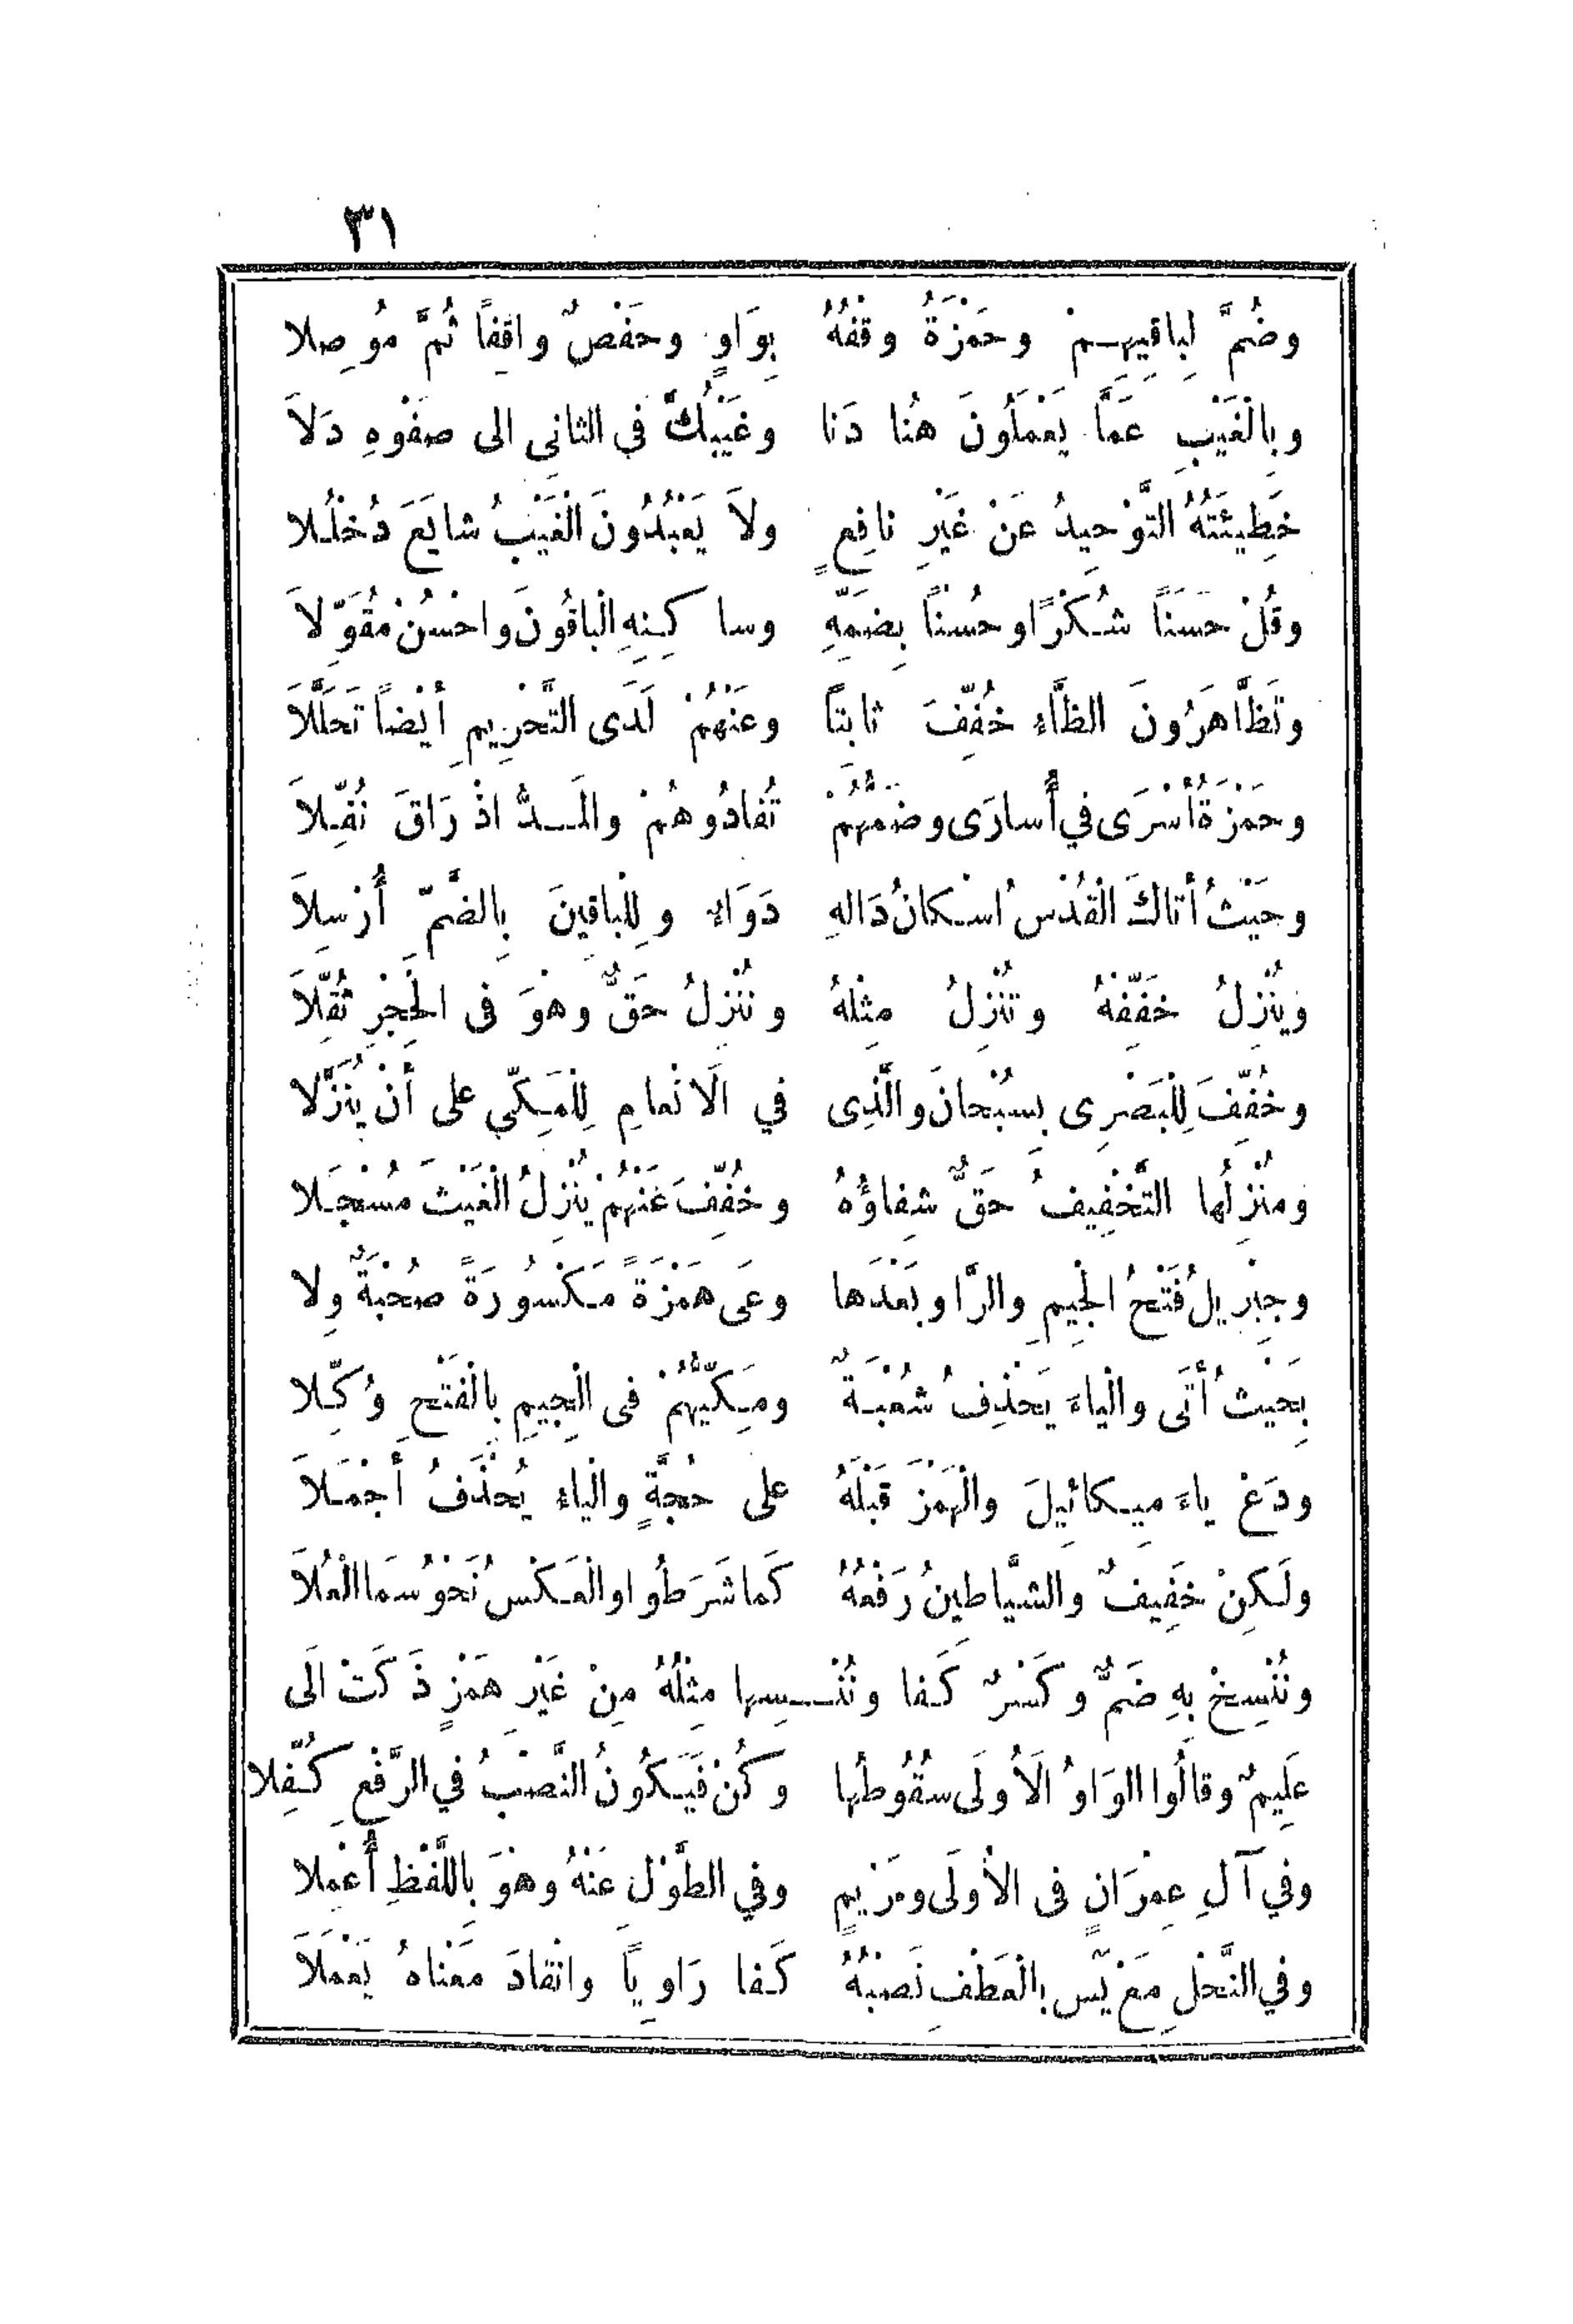 ٣١
وضُمَّ لِباقِيهِـمْ وحَمْزَةُ وقْفُهُ بِوَاوٍ وحَفْصٌ واقِفاً ثُمَّ مُوصِلا
وبِالْغَيْبِ عَمَّا يَعْمَلُونَ هُنا دَنا وغَيْبُكَ في الثانِى الى صفْوِهِ دَلاَ
خَطِيئَتُهُ التَّوْحِيدُ عَنْ غَيْرِ نافِعٍ ولاَ يَعْبُدُونَ الْغَيْبُ شايَعَ دُخْلُـلا
وقُلْ حَسَنًا شُـكْرًا وحُسْنًا بِضَمِّهِ وساكِـنِهِ الْباقُونَ واحْسُنْ مُقَوِّلاَ
وتَظَّاهَرُونَ الظَّاءُ خُفِّفَ ثابِتًا وعَنْهُمْ لَدَى التَّحْرِيمِ أيْضاً تَحَلَّلاَ
وحَمْزَةُ أَسْرَى في أُسارَى وضَمُّهُمْ تُفادُوهُمْ والمَــدُّ اذْ رَاقَ نُفِّـلاَ
وحَيْثُ أتاكَ الْقُدْسُ اسْـكانُ دَالهِ دَوَاءٌ ولِلْباقِينَ بِالضَّمِّ أُرْسِلاَ
ويُنْزِلُ خَفِّفْهُ وتُنْزِلُ مِثْلهُ ونُنْزِلُ حَقٌّ وهْوَ فى الْحِجْرِ ثُقِّلاَ
وخُفِّفَ لِلْبَصْرِى بِسُبْحانَ والَّذِى في الَانْعامِ لِلْمَـكِّي على أنْ يُنَزِّلا
ومُنْزِلُها التَّخْفِيفُ حَقٌّ شِفاؤُهُ وخُفِّفَ عَنْهُمْ يُنْزِلُ الْغَيْثَ مُسْجَـلا
وجِبْرِيلُ فَتْحُ الْجِيمِ والرَّا وبَعْدَها وعَى هَمْزَةً مَـكْسُورَةً صُحْبَةٌ وِلا
بِحَيْثُ أتَى والْياءَ يَحْذِفُ شُعْبَـةٌ ومَـكِّيُّهُمْ فى الْجِيمِ بِالْفَتْحِ وُكِّـلا
ودَعْ ياءَ ميـكائيلَ والْهَمْزَ قَبْلَهُ على حُجَّةٍ والْياءُ يُحْذَفُ أجْمَـلاَ
ولَـكِنْ خَفِيفٌ والشَّياطِينُ رَفْعُهُ كَما شَرَطُوا والْعَـكْسُ نَحْوٌ سَما الْعُلاَ
ونُنْسِخْ بِهِ ضَمٌّ وكَسْرٌ كَـفا ونُنْـــسِها مِثْلُهُ مِنْ غَيْرِ هَمْزٍ ذَكَتْ الَى
عَلِيمٌ وقالُوا الوَاوُ الَأُولَى سُقُوطُها وكُنْ فَيَـكُونُ النَّصْبُ في الرَّفْعِ كُـفِّلا
وفي آلِ عِمْرَانٍ فى الأُولَى ومَرْيمٍ وفي الطَّوْلِ عَنْهُ وهْوَ بِاللَّفْظِ أُعْمِلا
وفي النَّحْلِ مَعْ يَس بِالْعَطْفِ نَصْبُهُ كَـفا رَاوِياً وانْقادَ مَعْناهُ يَعْمَلاَ